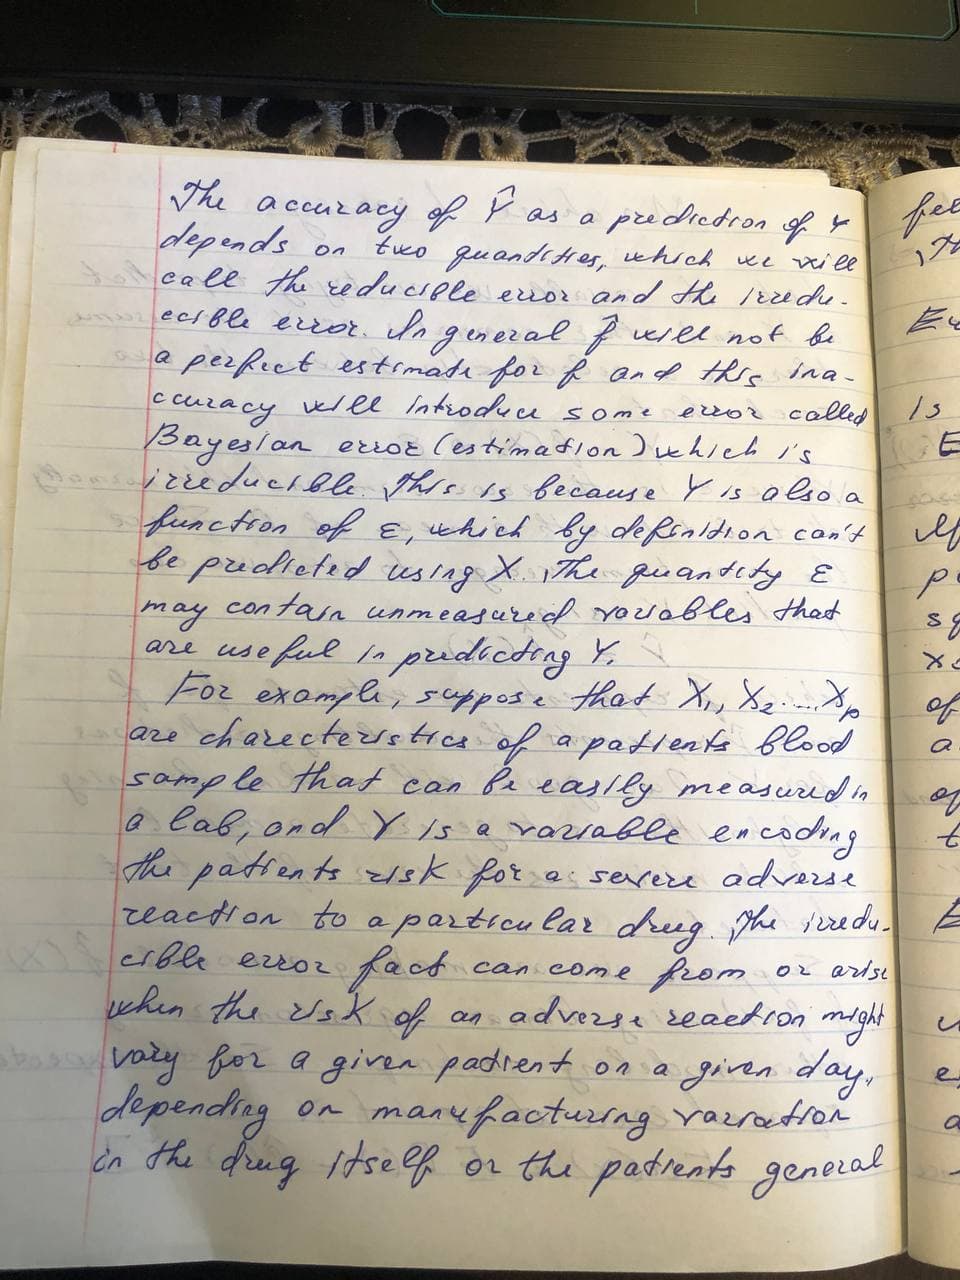 The accuracy of Ŷ as a prediction of Y
depends on two quantities, which we will
call the reducible error and the irredu-
ccible error. In general f̂ will not be
a perfect estimate for f and this ina-
ccuracy will introduce some error called
Bayesian error (estimation) which is
irreducible. This is because Y is also a
function of ε, which by definition can't
be predicted using X. The quantity ε
may contain unmeasured variables that
are useful in predicting Y.
For example, suppose that X₁, X₂....Xp
are charecteristics of a patients blood
sample that can be easily measured in
a lab, and Y is a variable encoding
the patients risk for a severe adverse
reaction to a particular drug. The irredu-
cible error fact can come from or arise
when the risk of an adverse reaction might
vary for a given patient on a given day,
depending on manufacturing variation
in the drug itself or the patients general
fel
Th
is
E
If
of
a
of
t